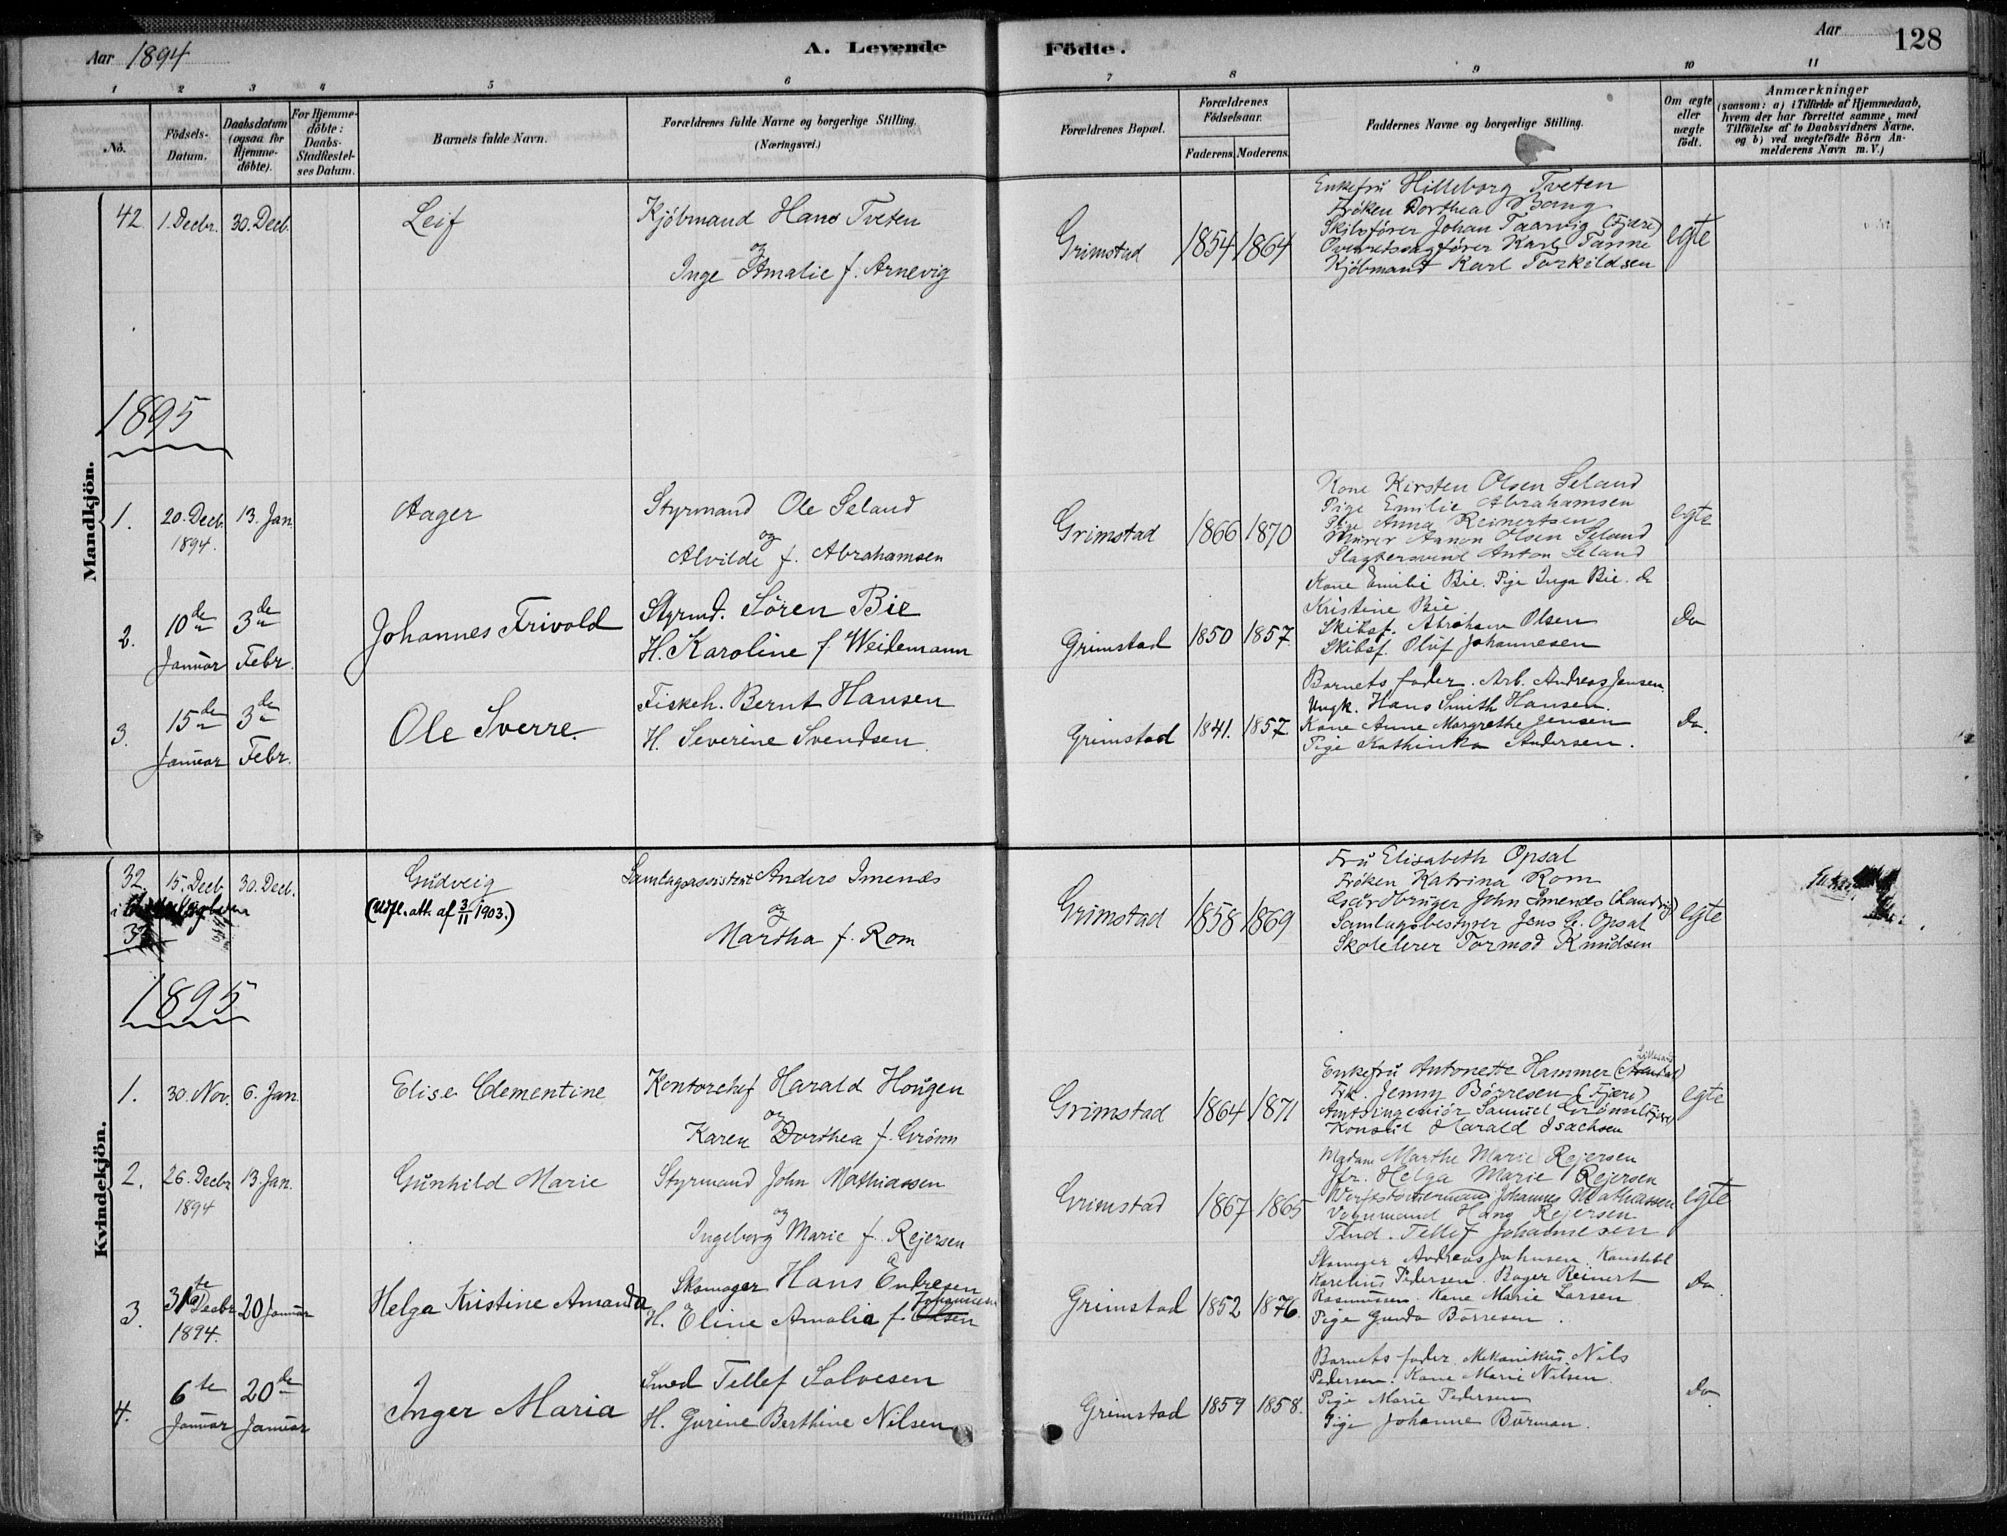 Aar 1894
A. Levende Födte.
Aar
128
1 2 3 4 5 6 7 8 9 10 11
No.
Födsels-Datum.
Daabsdatum (ogsaa for Hjemmedöbte).
For Hjemmedöbte: Daabs-Stadfæstelses Datum.
Barnets fulde Navn.
Forældrenes fulde Navne og borgerlige Stilling.
(Næringsvei.)
Forældrenes Bopæl.
Forældrenes Födselsaar.
Faderens. Moderens.
Faddernes Navne og borgerlige Stilling.
Om ægte eller uægte født.
Anmærkninger
(saasom: a) i Tilfælde af Hjemmedaab, hvem der har forrettet samme, med Tilföielse af to Daabsvidners Navne. og b) ved uægtefödte Börn Anmelderens Navn m. V.)
Mandkjön.
42. 1. Decbr. 30. Decb. Leif
Kjöbmand Hans Tveten
og
Inge Amalie f. Arnevig
Grimstad 1854 1864
Enkefru Hilleborg Tveten
Fröken Dorthea Bang
Skibsförer Johan Taarvig (Fjære)
Overretssagförer Karl Fanne
Kjöbmand Karl Torkildsen
egte
1895
1. 20. Decb. 1894. 13. Jan. Aager
Styrmand Ole Seland
og
Alvilde f. Abrahamsen
Grimstad 1866 1870
Kone Kirsten Olsen Seland
Pige Emilie Abrahamsen
Pige Anna Reinertsen
Murer Aanon Olsen Seland
Slagtersvend Anton Seland
egte
2. 10de Januar 3de Febr. Johannes Frivold
Styrmd. Sören Bie
H. Karoline f Weidemann
Grimstad 1850 1857.
Kone Emilie Bie. Pige Inga Bie. do
Kristine Bie
Skibsf. Abraham Olsen
Skibsf. Oluf Johannesen
Do
3. 15de Januar 3de Febr. Ole Sverre.
Fiskeh. Bernt Hansen
H. Severine Svendsen.
Grimstad 1841. 1857.
Barnets fader. Arb. Andreas Jensen.
Ungk. Hans Smith Hansen.
Kone Anne Margrethe Jensen
Pige Kathinka Andersen.
Do.
Kvindekjön.
32. 15. Decb. 30. Decb. Gudveig
(Udfl. att. af 3/11 1903.)
Samlagsassistent Anders Imenes
og
Martha f. Rom
Grimstad 1858 1869
Fru Elisabeth Opsal
Fröken Katrina Rom
Gaardbruger John Imenes (Landvig)
Samlagsbestyrer Jens G. Opsal
Skolelærer Tormod Knudsen
egte
1895
1. 30. Nov. 6. Jan. Elise Clementine
Kontorchef Harald Hougen
og
Karen Dorthea f. Grönn
Grimstad 1864 1871
Enkefru Antonette Hammer (Lillesand)
Frk. Jenny Börresen (Fjære)
Amtsingeniör Samuel Grönn (Fjære)
Konsul Harald Isachsen
egte
2. 26. Decbr. 1894 13. Jan. Gunhild Marie
Styrmand John Mathiassen
og
Ingeborg Marie f. Rejersen
Grimstad 1867 1865
Madam Marthe Marie Rejersen
Jfr. Helga Marie Rejersen
Johannes Mathiassen
Vognmand Hans Rejersen
Tellef Johannesen
egte
3. 31te Decbr 1894. 20 Januar Helga Kristine Amanda
Skomager Hans Endresen
H. Eline Amalia f. Olsen Johannesen
Grimstad 1852 1876.
Skomager Andreas Johnsen. Konstabl
Karelius Pedersen. Bager Reinert
Rasmussen. Kone Marie Larsen
Pige Gunda Börresen.
Do.
4. 6te Januar 20de Januar Inger Maria
Smed Tellef Salvesen
H. Gurine Berthine Nilsen
Grimstad 1859 1858.
Barnets fader. Mekanikus Nils
Pedersen. Kone Marie Nilsen.
Pige Marie Pedersen
Pige Johanne Burman.
Do.